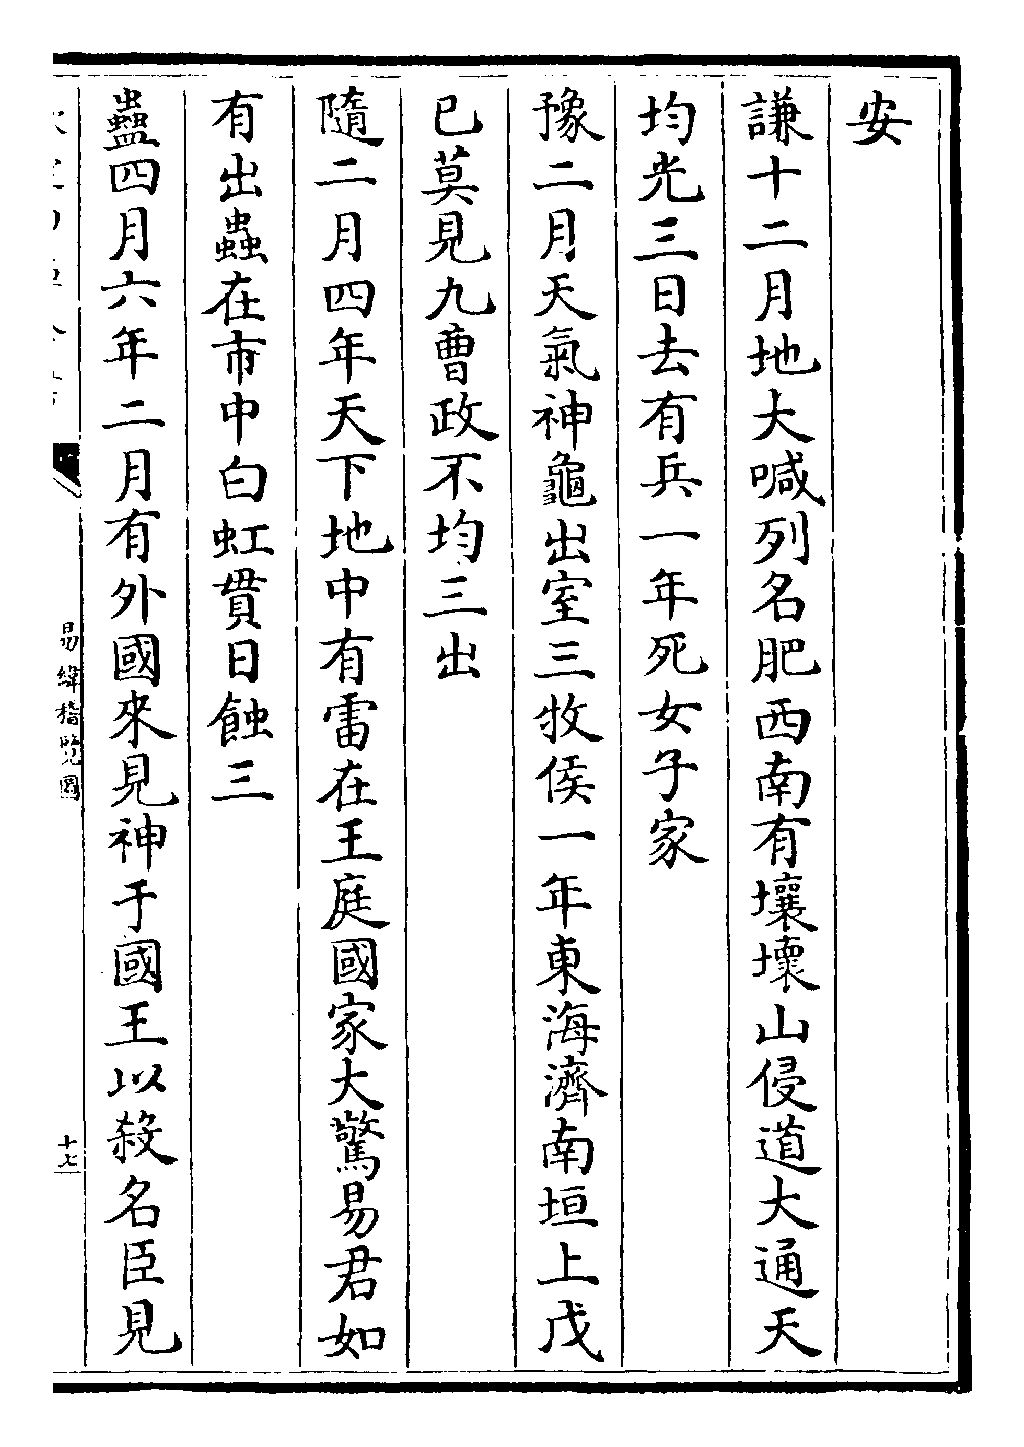 安
謙十二月地大喊列名肥西南有壤壞山侵道大通天
均光三日去有兵一年死女子家
豫二月天氣神龜出室三牧侯一年東海濟南垣上戊
已莫見九曹政不均三出
隨二月四年天下地中有雷在王庭國家大驚易君如
有出蟲在市中白虹貫日蝕三
蠱四月六年二月有外國來見神于國王以殺名臣見
易緯稽覽圖
十七